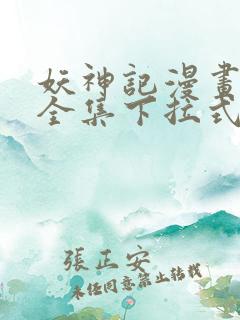 妖神記漫畫
全集下拉式
張正安
未經同意禁止轉載